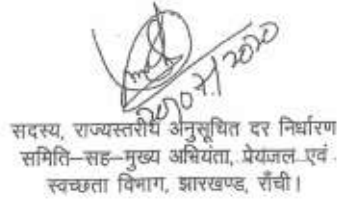 20/07/2020
सदस्य, राज्यस्तरीय अनुसूचित दर निर्धारण
समिति–सह–मुख्य अभियंता, पेयजल एवं
स्वच्छता विभाग, झारखण्ड, राँची।